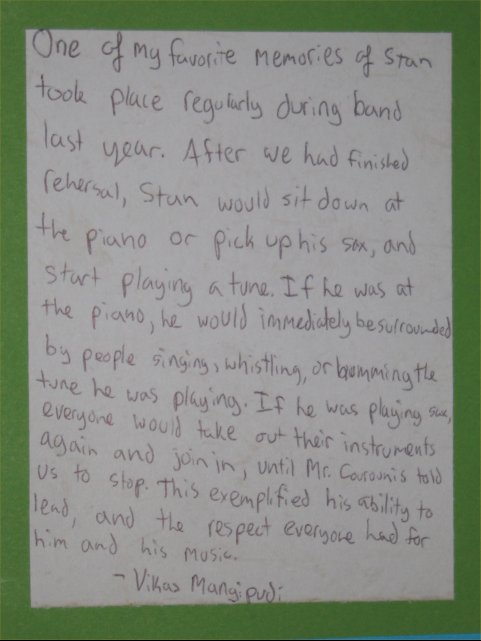 One of my favorite memories of Stan
took place regularly during band
last year. After we had finished
rehersal, Stan would sit down at
the piano or pick up his sax, and
start playing a tune. If he was at
the piano, he would immediately be surrounded
by people singing, whistling, or humming the
tune he was playing. If he was playing sax,
everyone would take out their instruments
again and join in, until Mr. Courounis told
us to stop. This exemplified his ability to
lead, and the respect everyone had for
him and his music.
- Vikas Mangipudi